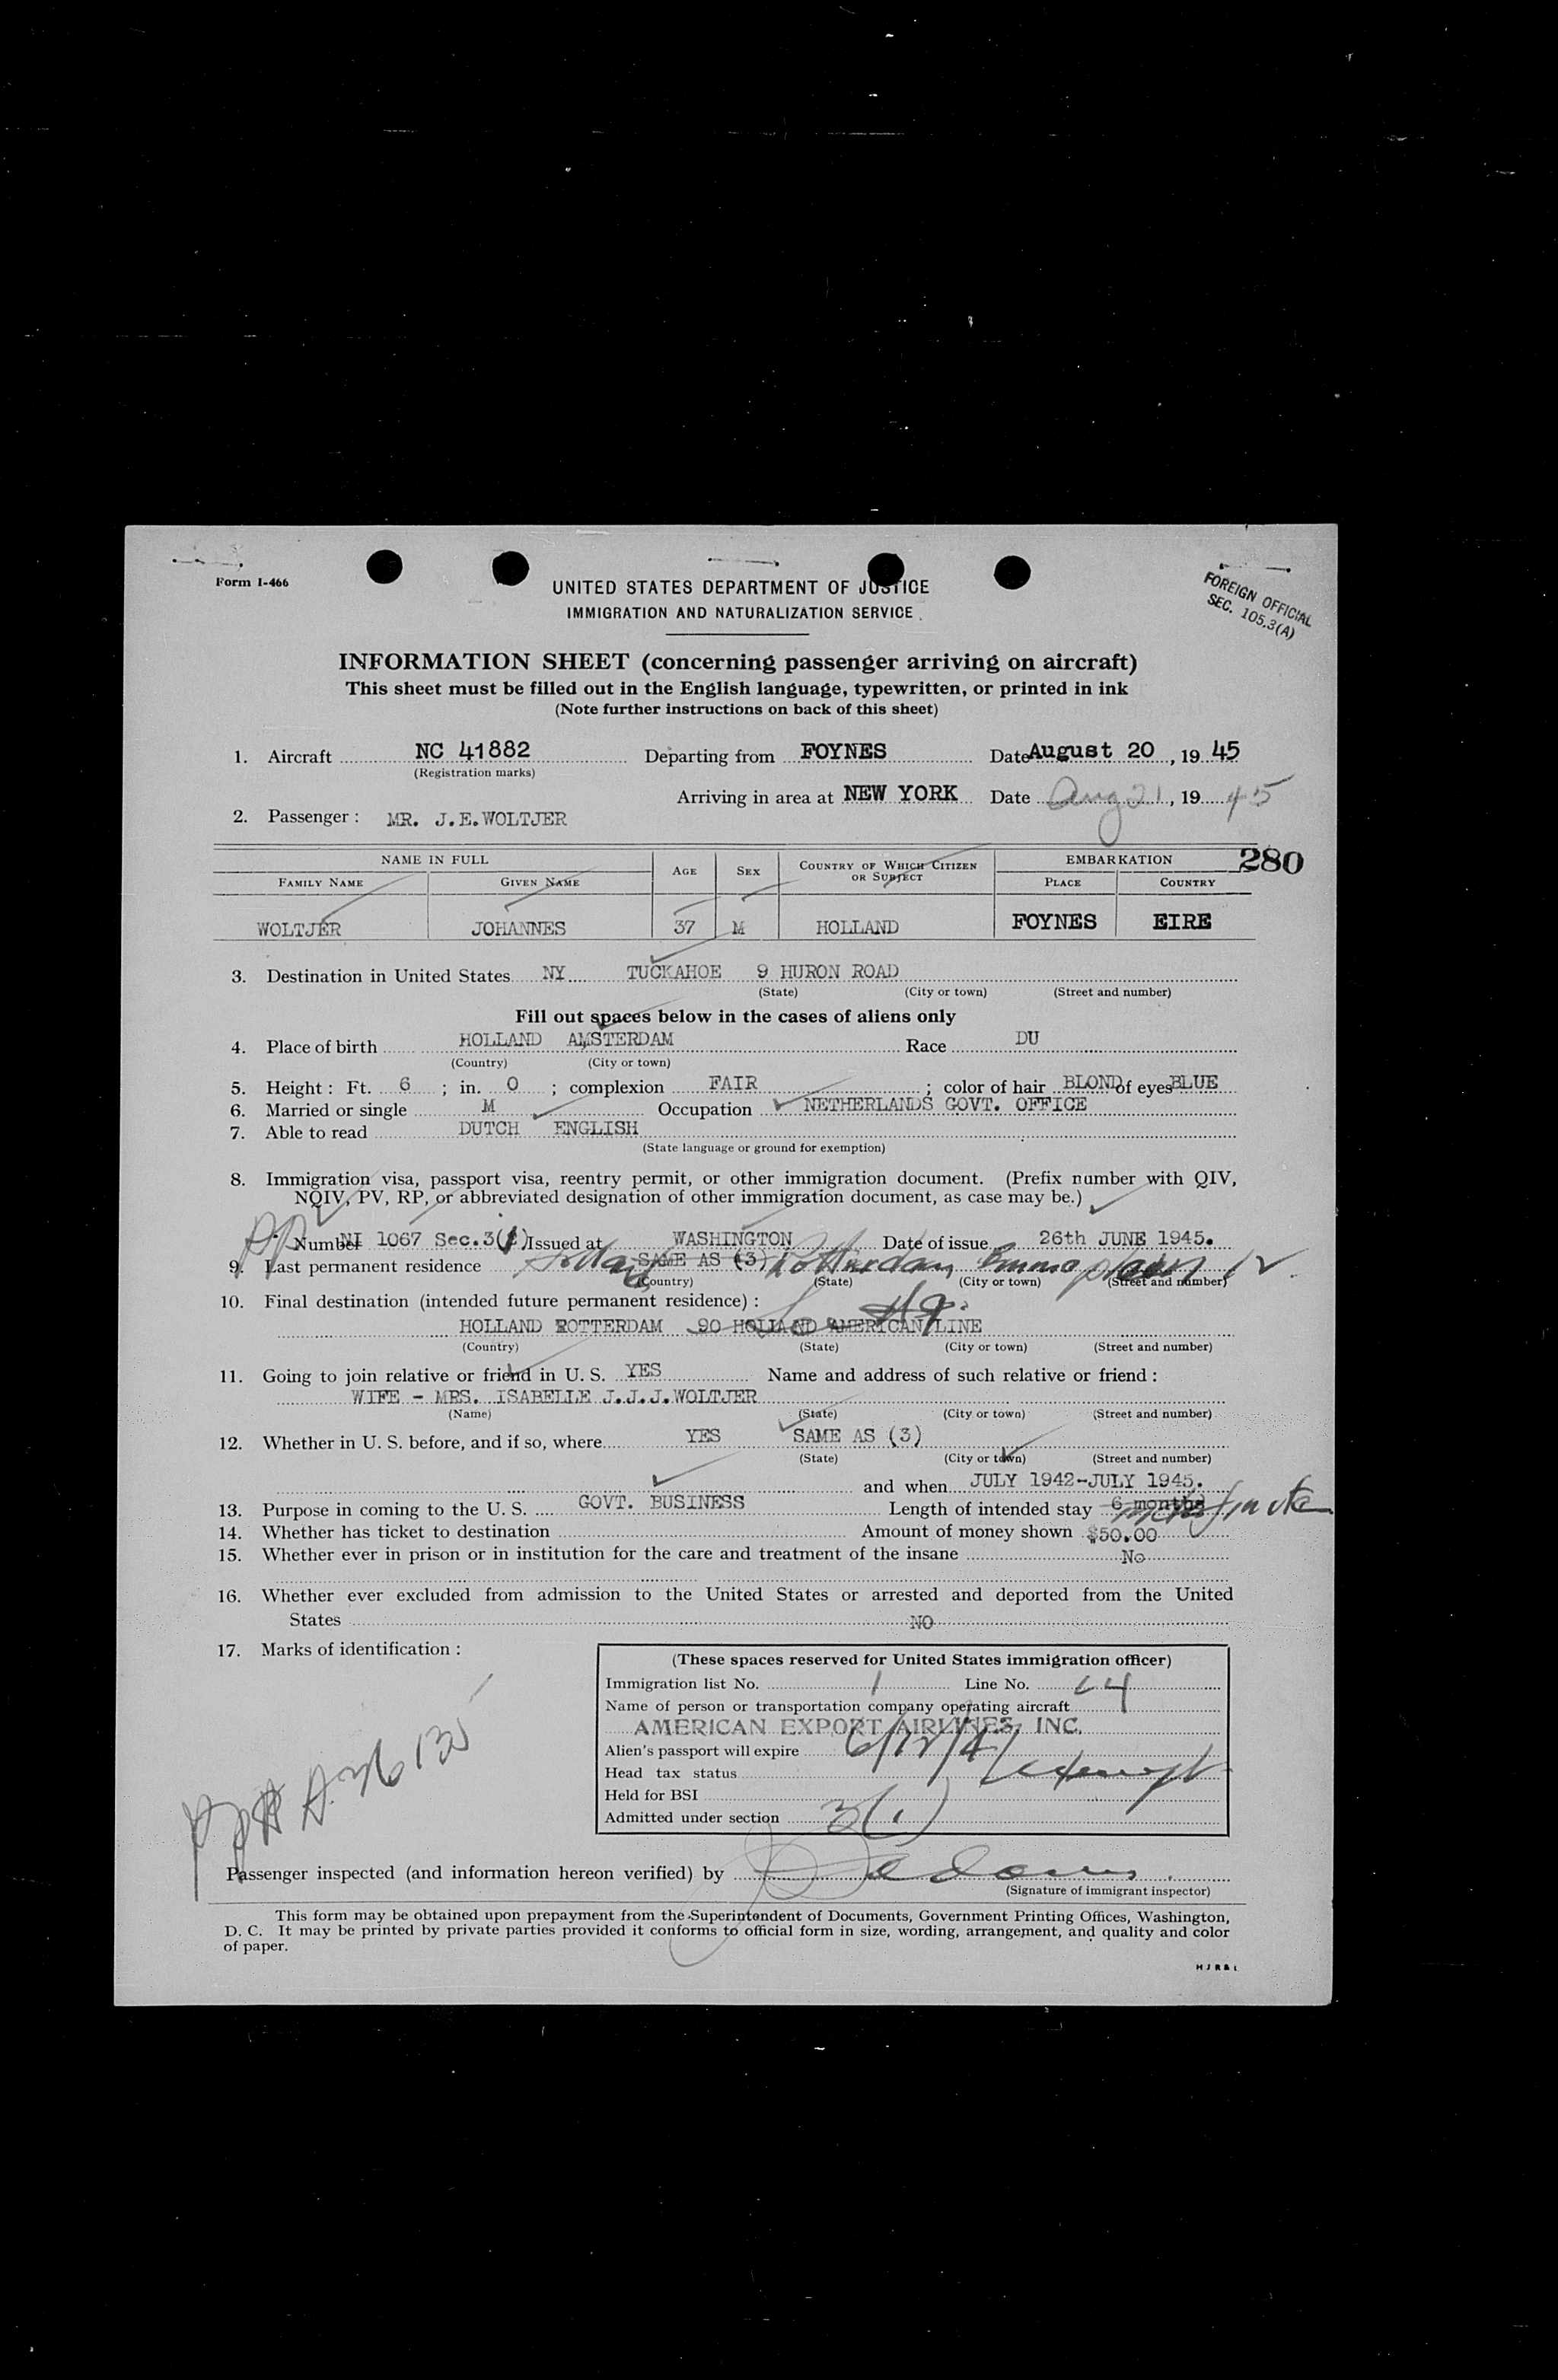 Form I-466
UNITED STATES DEPARTMENT OF JUSTICE
IMMIGRATION AND NATURALIZATION SERVICE
FOREIGN OFFICIAL
SEC. 105.3(A)
INFORMATION SHEET (concerning passenger arriving on aircraft)
This sheet must be filled out in the English language, typewritten, or printed in ink
(Note further instructions on back of this sheet)
1. Aircraft NC 41882 Departing from FOYNES Date August 20, 19 45
(Registration marks)
Arriving in area at NEW YORK Date Aug 21, 19 45
2. Passenger: MR. J.E.WOLTJER
280
NAME IN FULL AGE SEX COUNTRY OF WHICH CITIZEN OR SUBJECT EMBARKATION
FAMILY NAME GIVEN NAME PLACE COUNTRY
WOLTJER JOHANNES 37 M HOLLAND FOYNES EIRE
3. Destination in United States NY TUCKAHOE 9 HURON ROAD
(State) (City or town) (Street and number)
Fill out spaces below in the cases of aliens only
4. Place of birth HOLLAND AMSTERDAM Race DU
(Country) (City or town)
5. Height: Ft. 6 ; in. 0 ; complexion FAIR ; color of hair BLOND of eyes BLUE
6. Married or single M Occupation NETHERLANDS GOVT. OFFICE
7. Able to read DUTCH ENGLISH
(State language or ground for exemption)
8. Immigration visa, passport visa, reentry permit, or other immigration document. (Prefix number with QIV,
NQIV, PV, RP, or abbreviated designation of other immigration document, as case may be.)
PP Number NI 1067 Sec.3(1) Issued at WASHINGTON Date of issue 26th JUNE 1945.
9. Last permanent residence SAME AS (3) Holland Rotterdam Emmaplein 12
(Country) (State) (City or town) (Street and number)
10. Final destination (intended future permanent residence):
HOLLAND ROTTERDAM 90 HOLLAND AMERICAN LINE
(Country) (State) (City or town) (Street and number)
11. Going to join relative or friend in U. S. YES Name and address of such relative or friend:
WIFE - MRS. ISABELLE J.J.J.WOLTJER
(Name) (State) (City or town) (Street and number)
12. Whether in U. S. before, and if so, where YES SAME AS (3)
(State) (City or town) (Street and number)
and when JULY 1942-JULY 1945.
13. Purpose in coming to the U. S. GOVT. BUSINESS Length of intended stay 6 months
14. Whether has ticket to destination Amount of money shown $50.00
15. Whether ever in prison or in institution for the care and treatment of the insane No
16. Whether ever excluded from admission to the United States or arrested and deported from the United
States NO
17. Marks of identification:
(These spaces reserved for United States immigration officer)
Immigration list No. 1 Line No. 24
Name of person or transportation company operating aircraft
AMERICAN EXPORT AIRLINES, INC.
Alien's passport will expire 6/12/47
Head tax status exempt
Held for BSI
Admitted under section 3(1)
Passenger inspected (and information hereon verified) by
(Signature of immigrant inspector)
This form may be obtained upon prepayment from the Superintendent of Documents, Government Printing Offices, Washington,
D. C. It may be printed by private parties provided it conforms to official form in size, wording, arrangement, and quality and color
of paper.
HJR&L